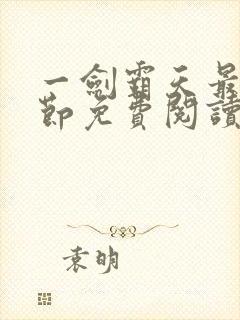 一劍霸天最
節免費閱讀
袁明